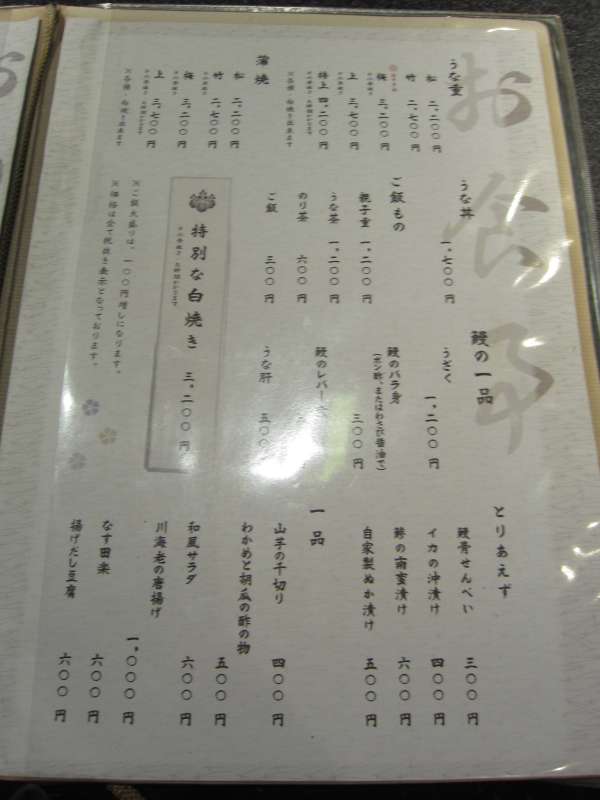 お食事
うな重
松 二、二〇〇円
竹 二、七〇〇円
梅 三、二〇〇円
上 三、七〇〇円
特上 四、二〇〇円
※各種 白焼き出来ます
蒲焼
松 二、二〇〇円
竹 二、七〇〇円
梅 三、二〇〇円
上 三、七〇〇円
※各種 白焼き出来ます
うな丼 一、七〇〇円
ご飯もの
親子重 一、二〇〇円
うな茶 一、二〇〇円
のり茶 六〇〇円
ご飯 三〇〇円
特別な白焼き 三、二〇〇円
※ご飯大盛りは、一〇〇円増しになります。
※価格は全て税抜き表示となっております。
鰻の一品
うざく 一、二〇〇円
鰻のバラ身 三〇〇円
(ポン酢、またはわさび醤油で)
鰻のレバー
うな肝 五〇〇円
とりあえず
鰻骨せんべい 三〇〇円
イカの沖漬け 四〇〇円
鯵の南蛮漬け 六〇〇円
自家製ぬか漬け 五〇〇円
一品
山芋の千切り 四〇〇円
わかめと胡瓜の酢の物 五〇〇円
和風サラダ 六〇〇円
川海老の唐揚げ 一、〇〇〇円
なす田楽 六〇〇円
揚げだし豆腐 六〇〇円